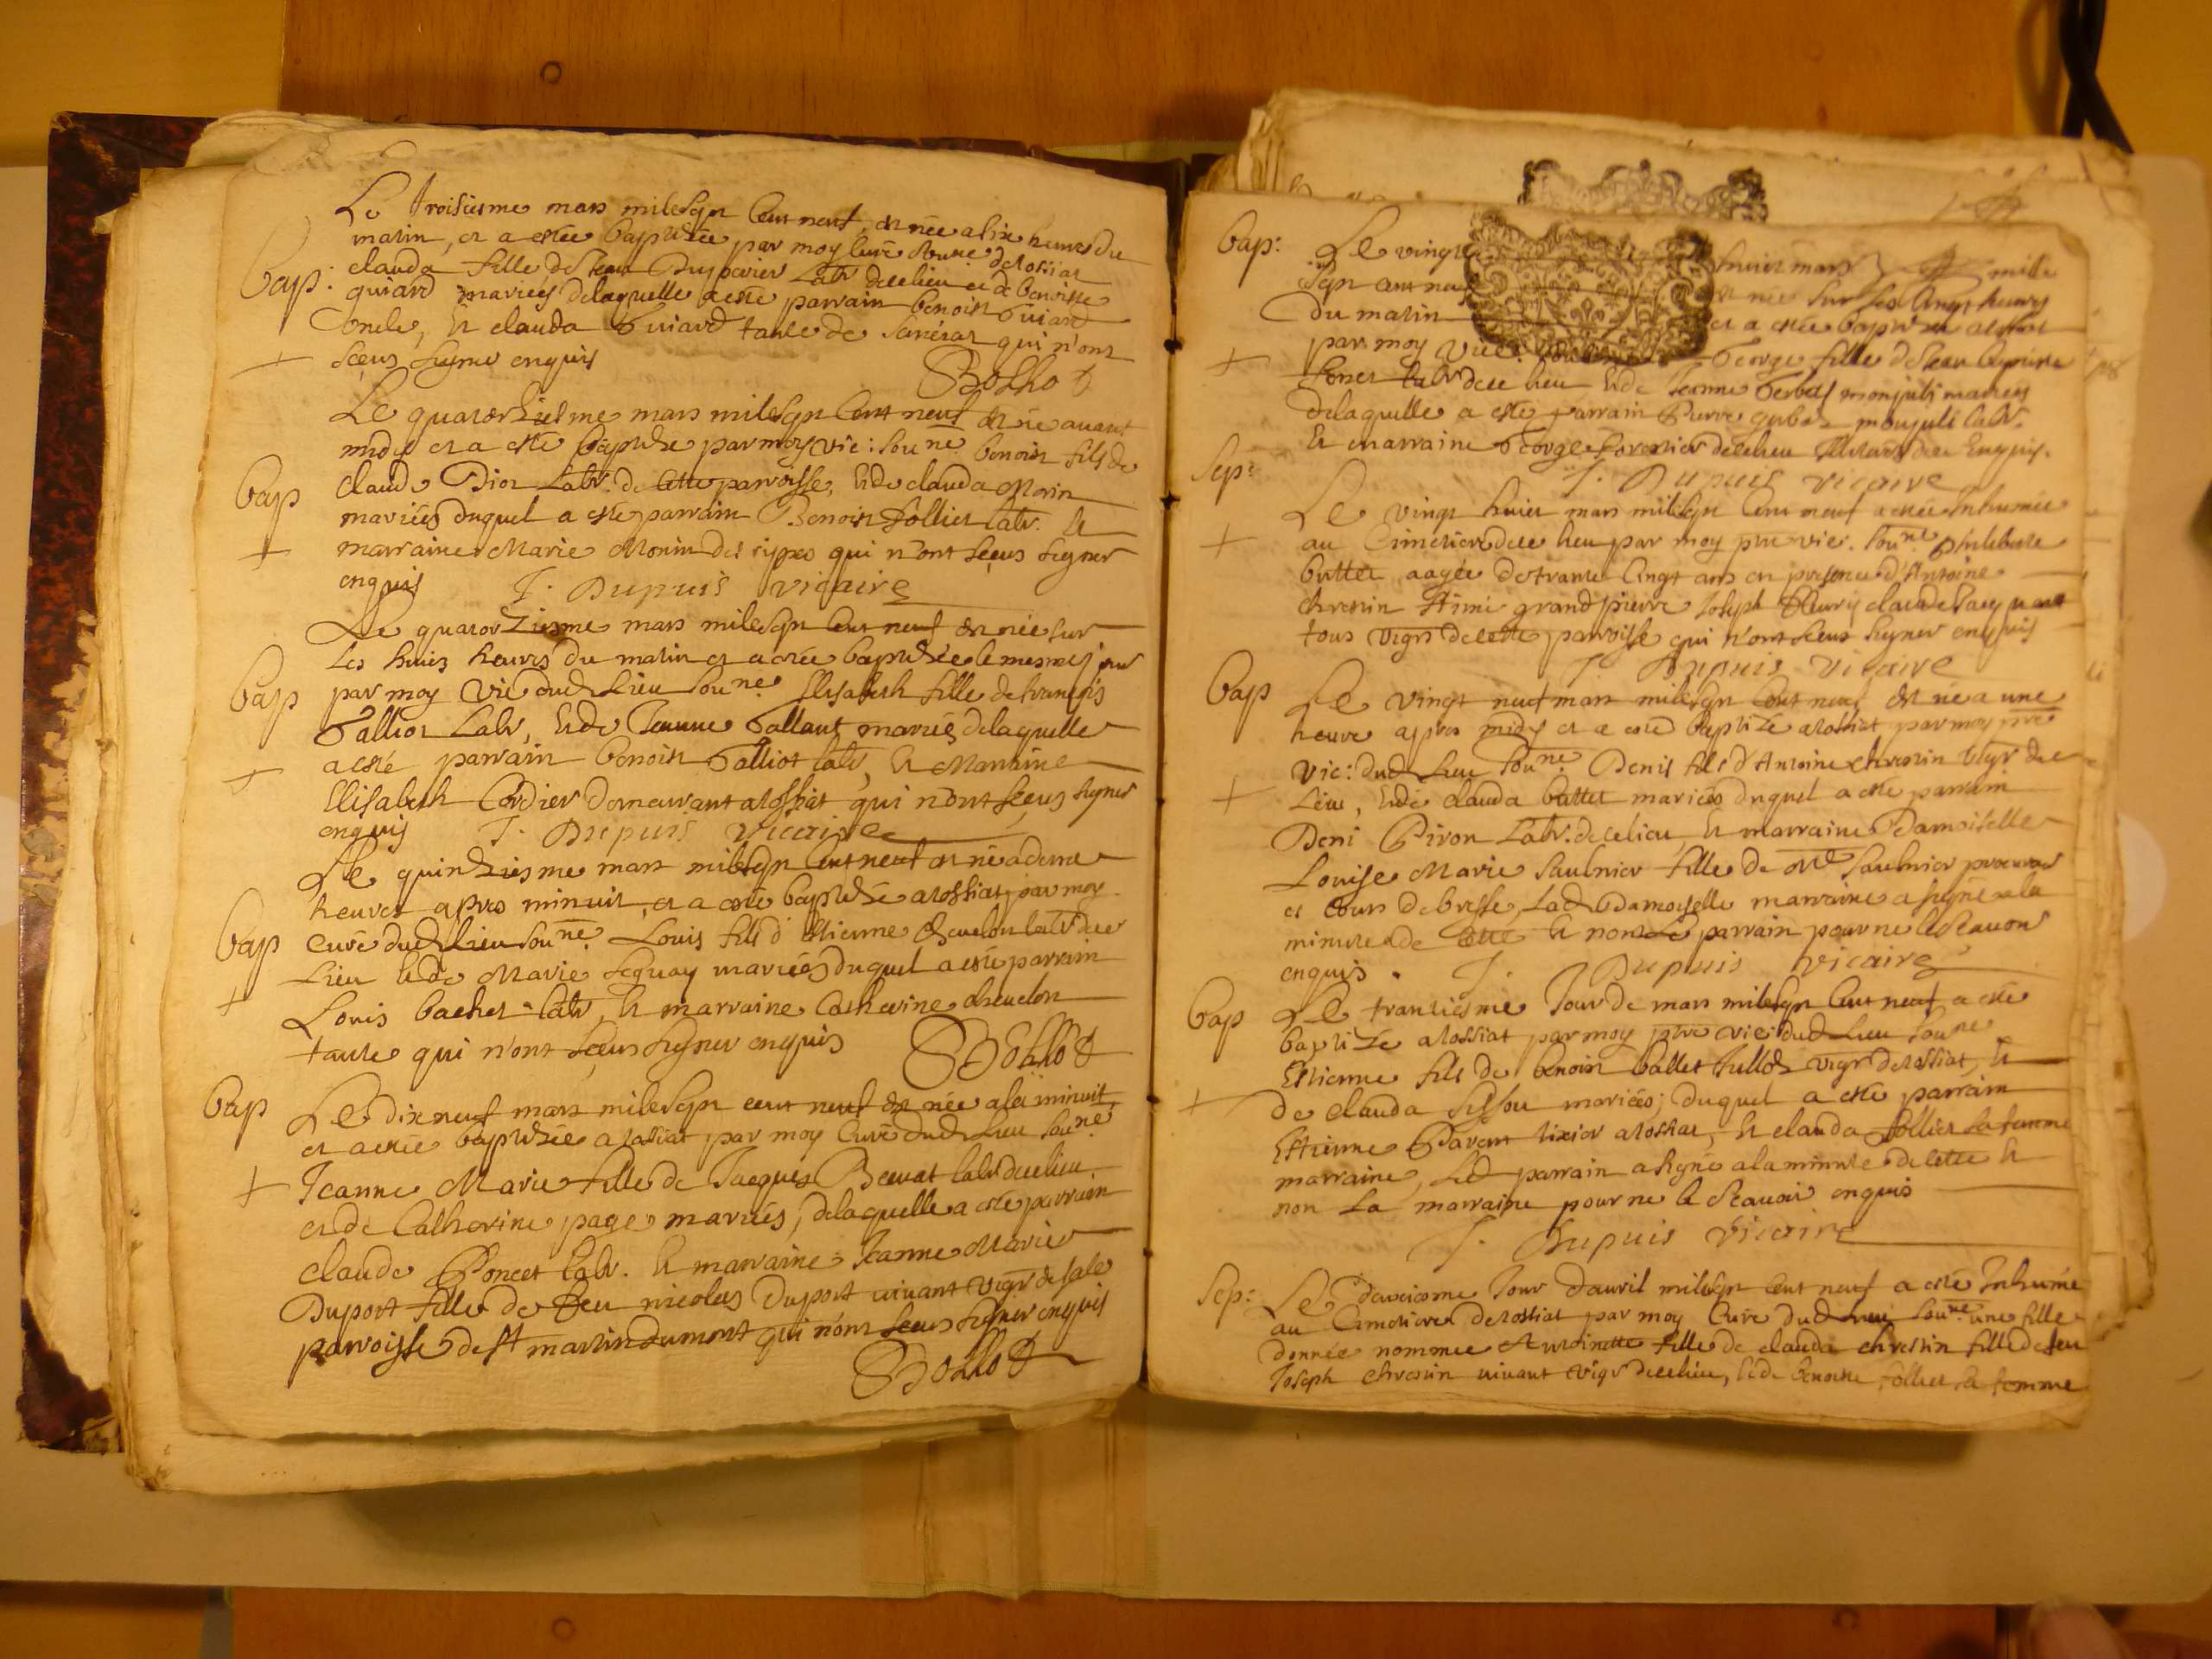 Le troisiesme mars milesept cent neuf, est née a six heures du
matin, et a estée baptizée par moy curé soune d'atossiat
Bap: clauda fille de Jean Duparier Labr dece lieu et de benoiste
guiard mariées delaquelle a esté parrain benoist Guiard
oncle, et clauda Guiard tante de qui n'ont
+ sceus signer enquis
Bollo
Le quatorziesme mars milesept cent neuf est né avant
midy et a esté baptizé par moy vic: soune benoist fils de
Bap claude Labr. de cette parroisse, et de clauda Morin
mariées duquel a esté parrain Benoist follier labr. et
+ marraine Marie Monin des rippes qui n'ont sceus signer
enquis J. Dupuis vicaire
Le quatorziesme mars milesept cent neuf est née sur
les huict heures du matin et a estée baptizée le mesme jour
Bap par moy vic dud Lieu soune Elisabeth fille de francois
Galliot Labr, et de Jeanne Gallant mariés delaquelle
+ a esté parrain benoist Galliot labr, et Marraine
Elisabeth Cordier demeurant atossiat qui n'ont sceus signer
enquis J. Dupuis vicaire
Le quinziesme mars milesept cent neuf est né a deme
heures apres minuit, et a esté baptizé atossiat par moy
Bap Curé dud Lieu soune Louis fils d'Estienne Chevelon labr dece
Lieu et de Marie seguay mariées duquel a esté parrain
+ Louis bachet labr, et marraine Catherine chevelon
tante qui n'ont sceus signer enquis Bollo
Bap Le dix neuf mars milesept cent neuf est née a la minuit,
et a estée baptizée atossiat par moy Curé dud Lieu soune
+ Jeanne Marie fille de Jacques Beuvat labr dece lieu
et de Catherine page mariés, delaquelle a esté parrain
claude Poncet labr. et marraine Jeanne Marie
Duport fille de feu nicolas Duport vivant vigr de sale
parroisse de st martin du mont qui n'ont sceus signer enquis
Bollo
Bap: Le vingt huict mars mille
sept cent neuf est née sur les cinq heures
du matin et a estée baptizée atossiat
+ par moy vic: George fille de Jean
Poncet labr dece lieu et de Jeanne monjuli mariées
delaquelle a esté parrain Pierre monjuli labr.
et marraine George dece lieu enquis.
J. Dupuis vicaire
Sep: Le vingt huict mars milesept cent neuf a estée Inhumée
+ au Cimetiere dece lieu par moy pre vic. soune philiberte
buttet aagée de trante cingt ans en presence d'Antoine
chrestin grand pierre Joseph fleury claude
tous vigrs de cette parroisse qui n'ont sceus signer enquis
J. Dupuis vicaire
Bap Le vingt neuf mars milesept cent neuf est né a une
heure apres midy et a esté baptizé atossiat par moy pre
+ vic: dud Lieu soune Denis fils d'Antoine chrestin vigr dece
Lieu, et de clauda buttet mariées duquel a esté parrain
Deni Piron Labr. dece lieu et marraine Damoiselle
Louise Marie Saulnier fille de Me Saulnier procureur
es cours debresse, Lad Damoiselle marraine a signé a la
minute de cette et non Le parrain pour ne le scavoir
enquis. J. Dupuis vicaire
Bap Le trantiesme Jour de mars milesept cent neuf a esté
baptizé atossiat par moy pre vic: dud Lieu soune
+ Estienne fils de benoist ballet vigr de tossiat, et
de clauda mariées; duquel a esté parrain
Estienne Parent tixier atossiat, et clauda follier sa femme
marraine, Led parrain a signé a la minute de cette et
non La marraine pour ne le scavoir enquis
J. Dupuis vicaire
Sep: Le deuxiesme Jour d'avril milesept cent neuf a esté Inhumé
au Cimetiere de tossiat par moy Curé dud Lieu soune une fille
donnée nommée Antoinette fille de clauda chrestin fille de feu
Joseph chrestin vivant vigr dece lieu, et de benoiste follier sa femme